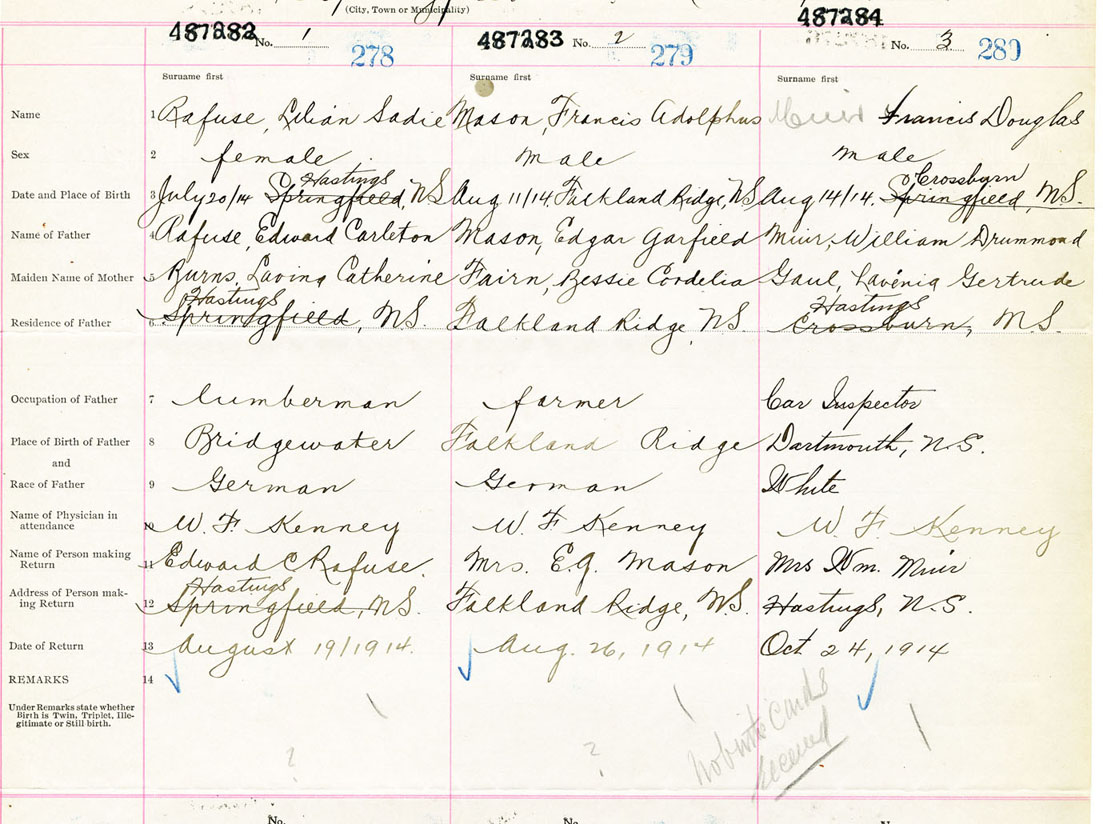 (City, Town or Municipality)
487282 No. 1 278 487283 No. 2 279 487284 No. 3 280
Surname first Surname first Surname first
Name 1 Rafuse, Lilian Sadie Mason, Francis Adolphus Muir Francis Douglas
Sex 2 female male male
Hastings Crossburn
Date and Place of Birth 3 July 20/14 Springfield, NS Aug 11/14. Falkland Ridge, NS Aug 14/14. Springfield, NS.
Name of Father 4 Rafuse, Edward Carleton Mason, Edgar Garfield Muir, William Drummond
Maiden Name of Mother 5 Burns, Lavina Catherine Fairn, Bessie Cordelia Gaul, Lavenia Gertrude
Hastings Hastings
Residence of Father 6 Springfield, NS. Falkland Ridge, NS. Crossburn, N.S.
Occupation of Father 7 lumberman farmer Car Inspector
Place of Birth of Father 8 Bridgewater Falkland Ridge Dartmouth, N.S.
and
Race of Father 9 German German White
Name of Physician in attendance 10 W. F. Kenney W F Kenney W. F. Kenney
Name of Person making Return 11 Edward C Rafuse. Mrs. E.G. Mason Mrs Wm. Muir
Hastings
Address of Person making Return 12 Springfield, NS. Falkland Ridge, NS. Hastings, N.S.
Date of Return 13 August 19/1914. Aug. 26, 1914 Oct 24, 1914
REMARKS 14
Under Remarks state whether
Birth is Twin, Triplet, Ille-
gitimate or Still birth.
? ? No birth Cards
received
No. No.